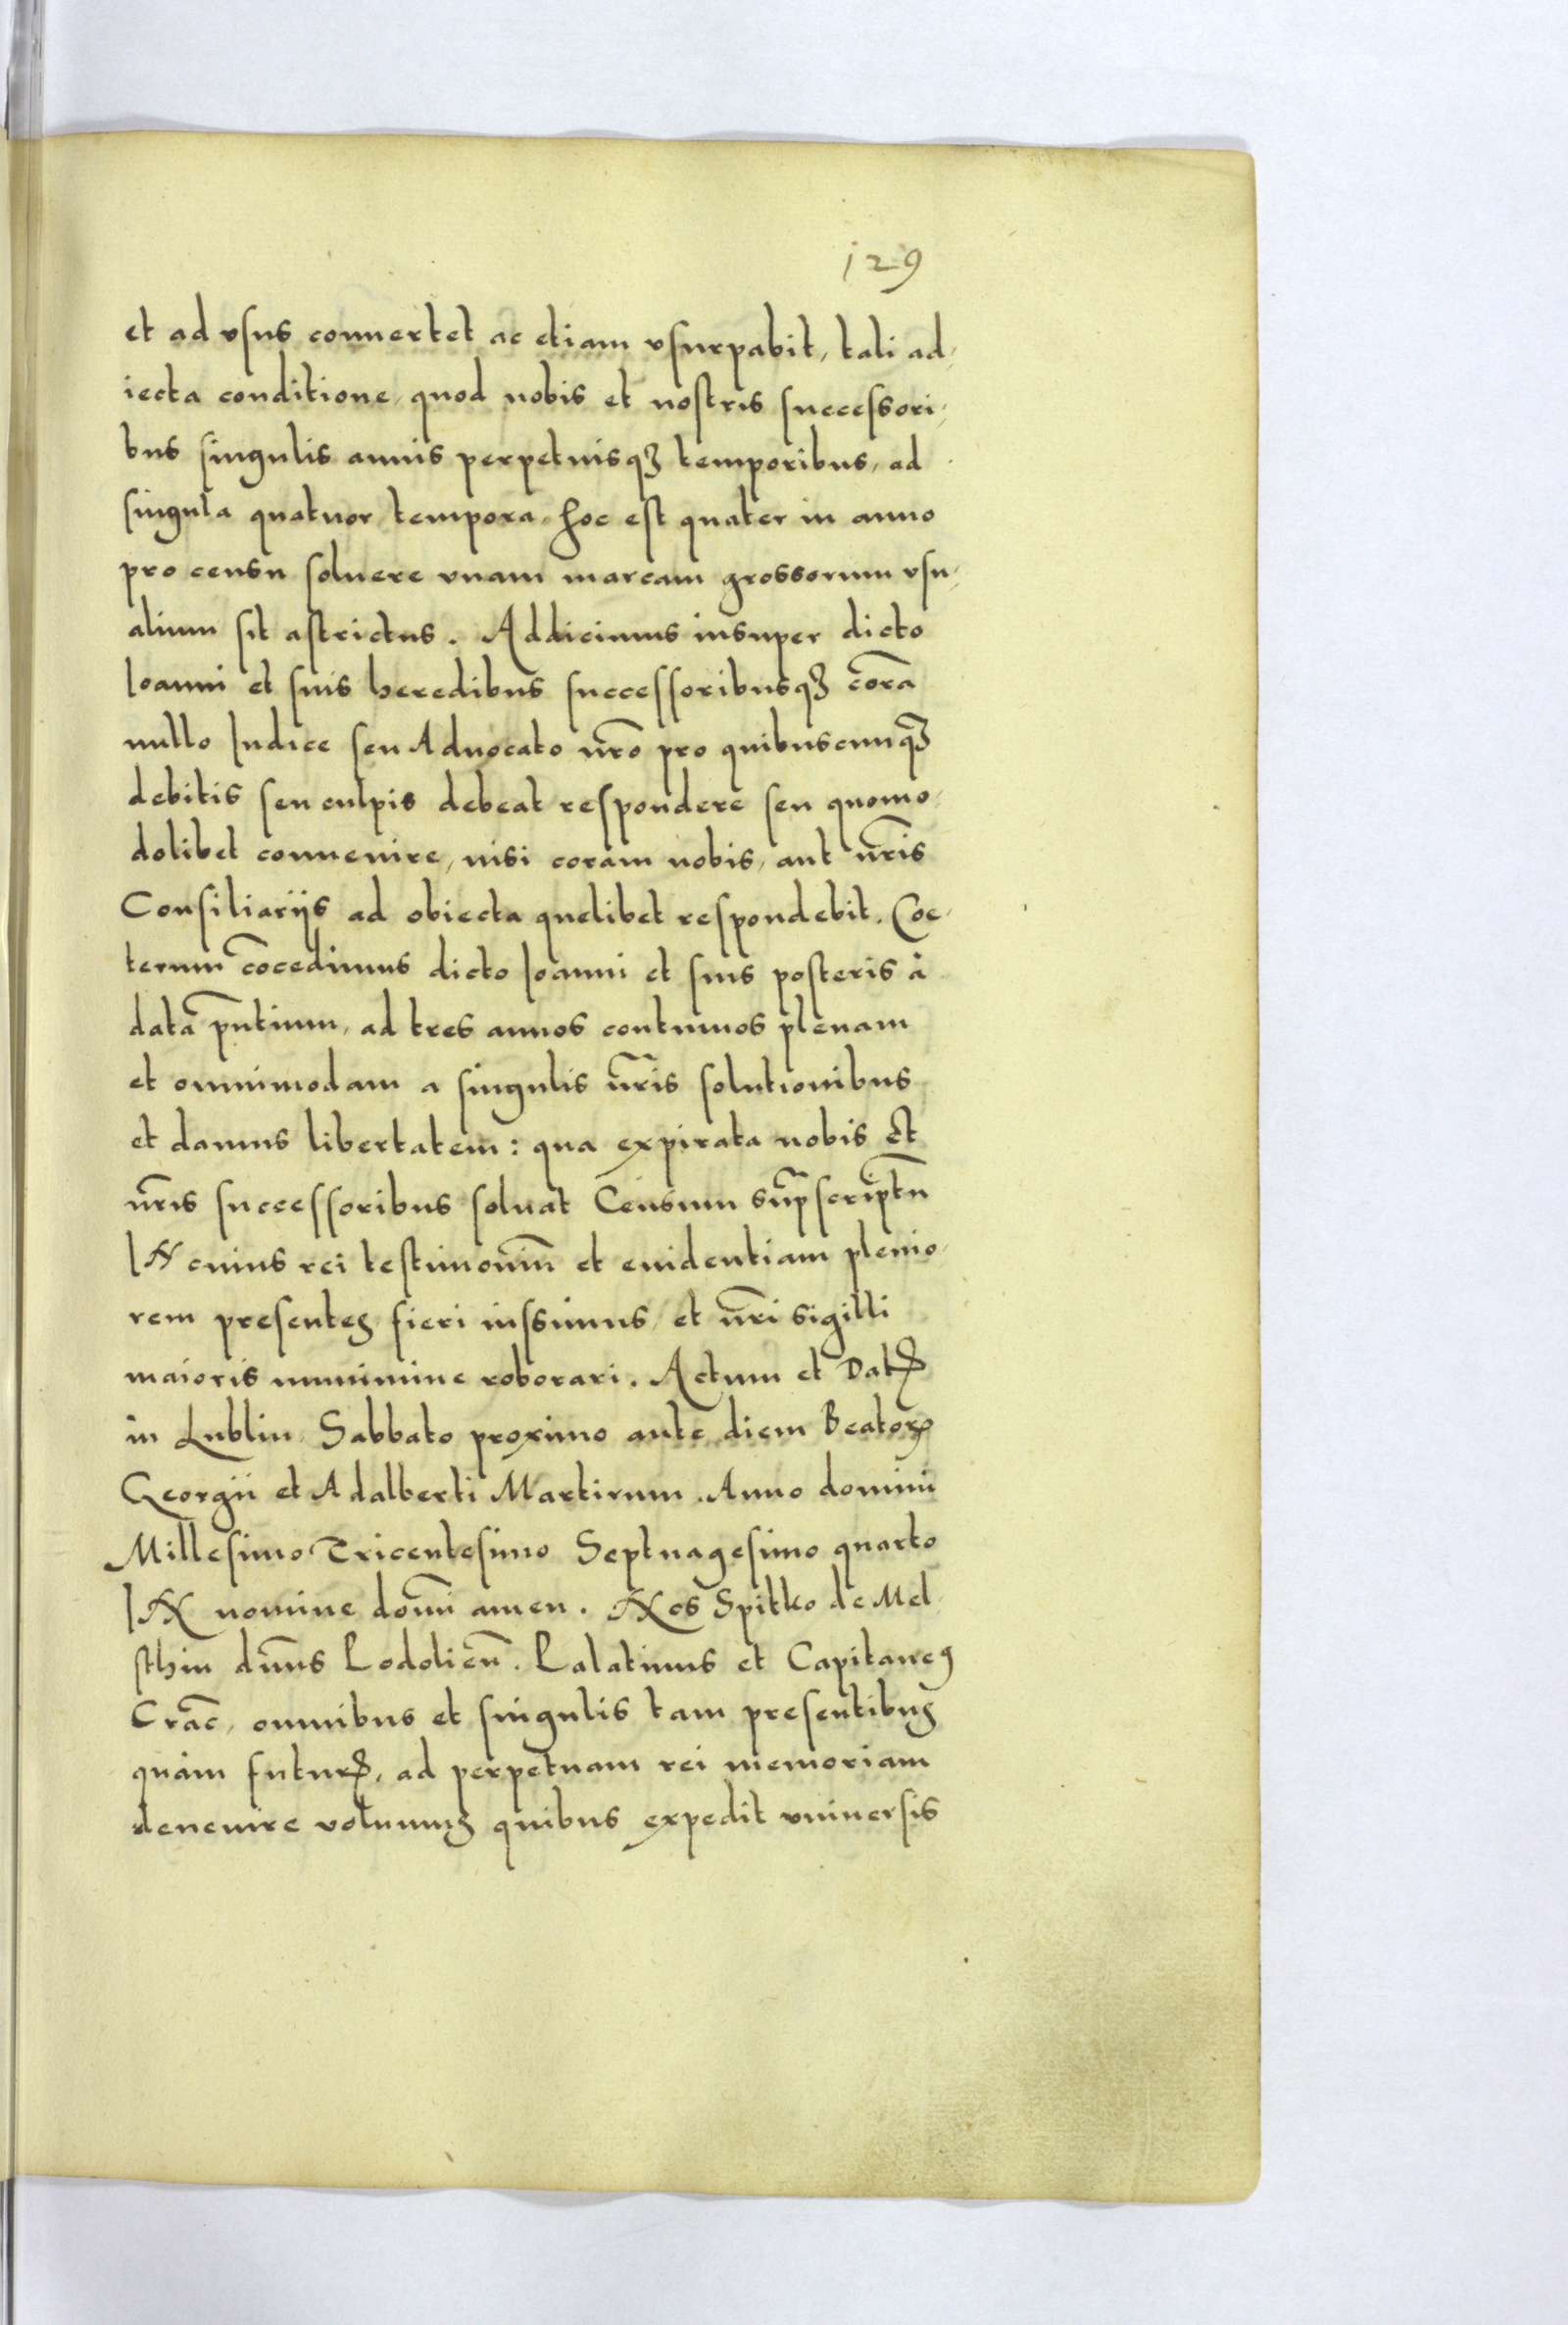 129
et ad vsus conuertet ac etiam vsurpabit, tali ad,
iecta conditione, quod nobis et nostris successori,
bus singulis annis perpetuisqꝫ temporibus, ad
singula quatuor tempora, hoc est quater in anno
pro censu soluere vnam marcam grossorum vsu,
alium sit astrictus. Addicimus insuper dicto
Ioanni et suis heredibus successoribusqꝫ corā
nullo Iudice seu Aduocato nr̄o pro quibuscunqꝫ
debitis seu culpis debeat respondere seu quomo,
dolibet conuenire, nisi coram nobis, aut nr̄is
Consiliarijs ad obiecta quelibet respondebit. Coe,
terum cōcedimus dicto Ioanni et suis posteris à
datā pn̄tium, ad tres annos continuos plenam
et omnimodam a singulis nr̄is solutionibus
et damus libertatem: qua expirata nobis et
nr̄is successoribus soluat Censum sup̄scriptū
IN cuius rei testimoniū et euidentiam plenio,
rem presentes fieri iussimus, et nr̄i sigilli
maioris munimine roborari. Actum et Datꝝ
in Lublin Sabbato proximo ante diem Beatoꝝ
Georgii et Adalberti Martirum. Anno domini
Millesimo Tricentesimo Septuagesimo quarto
IN nomine domī amen. Nos Spitko de Mel,
sthin dn̄us Podolieñ. Palatinus et Capitaneꝰ
Crac̄, omnibus et singulis tam presentibuꝫ
quàm futurꝭ, ad perpetuam rei memoriam
deuenire volumuꝫ quibus expedit vniuersis